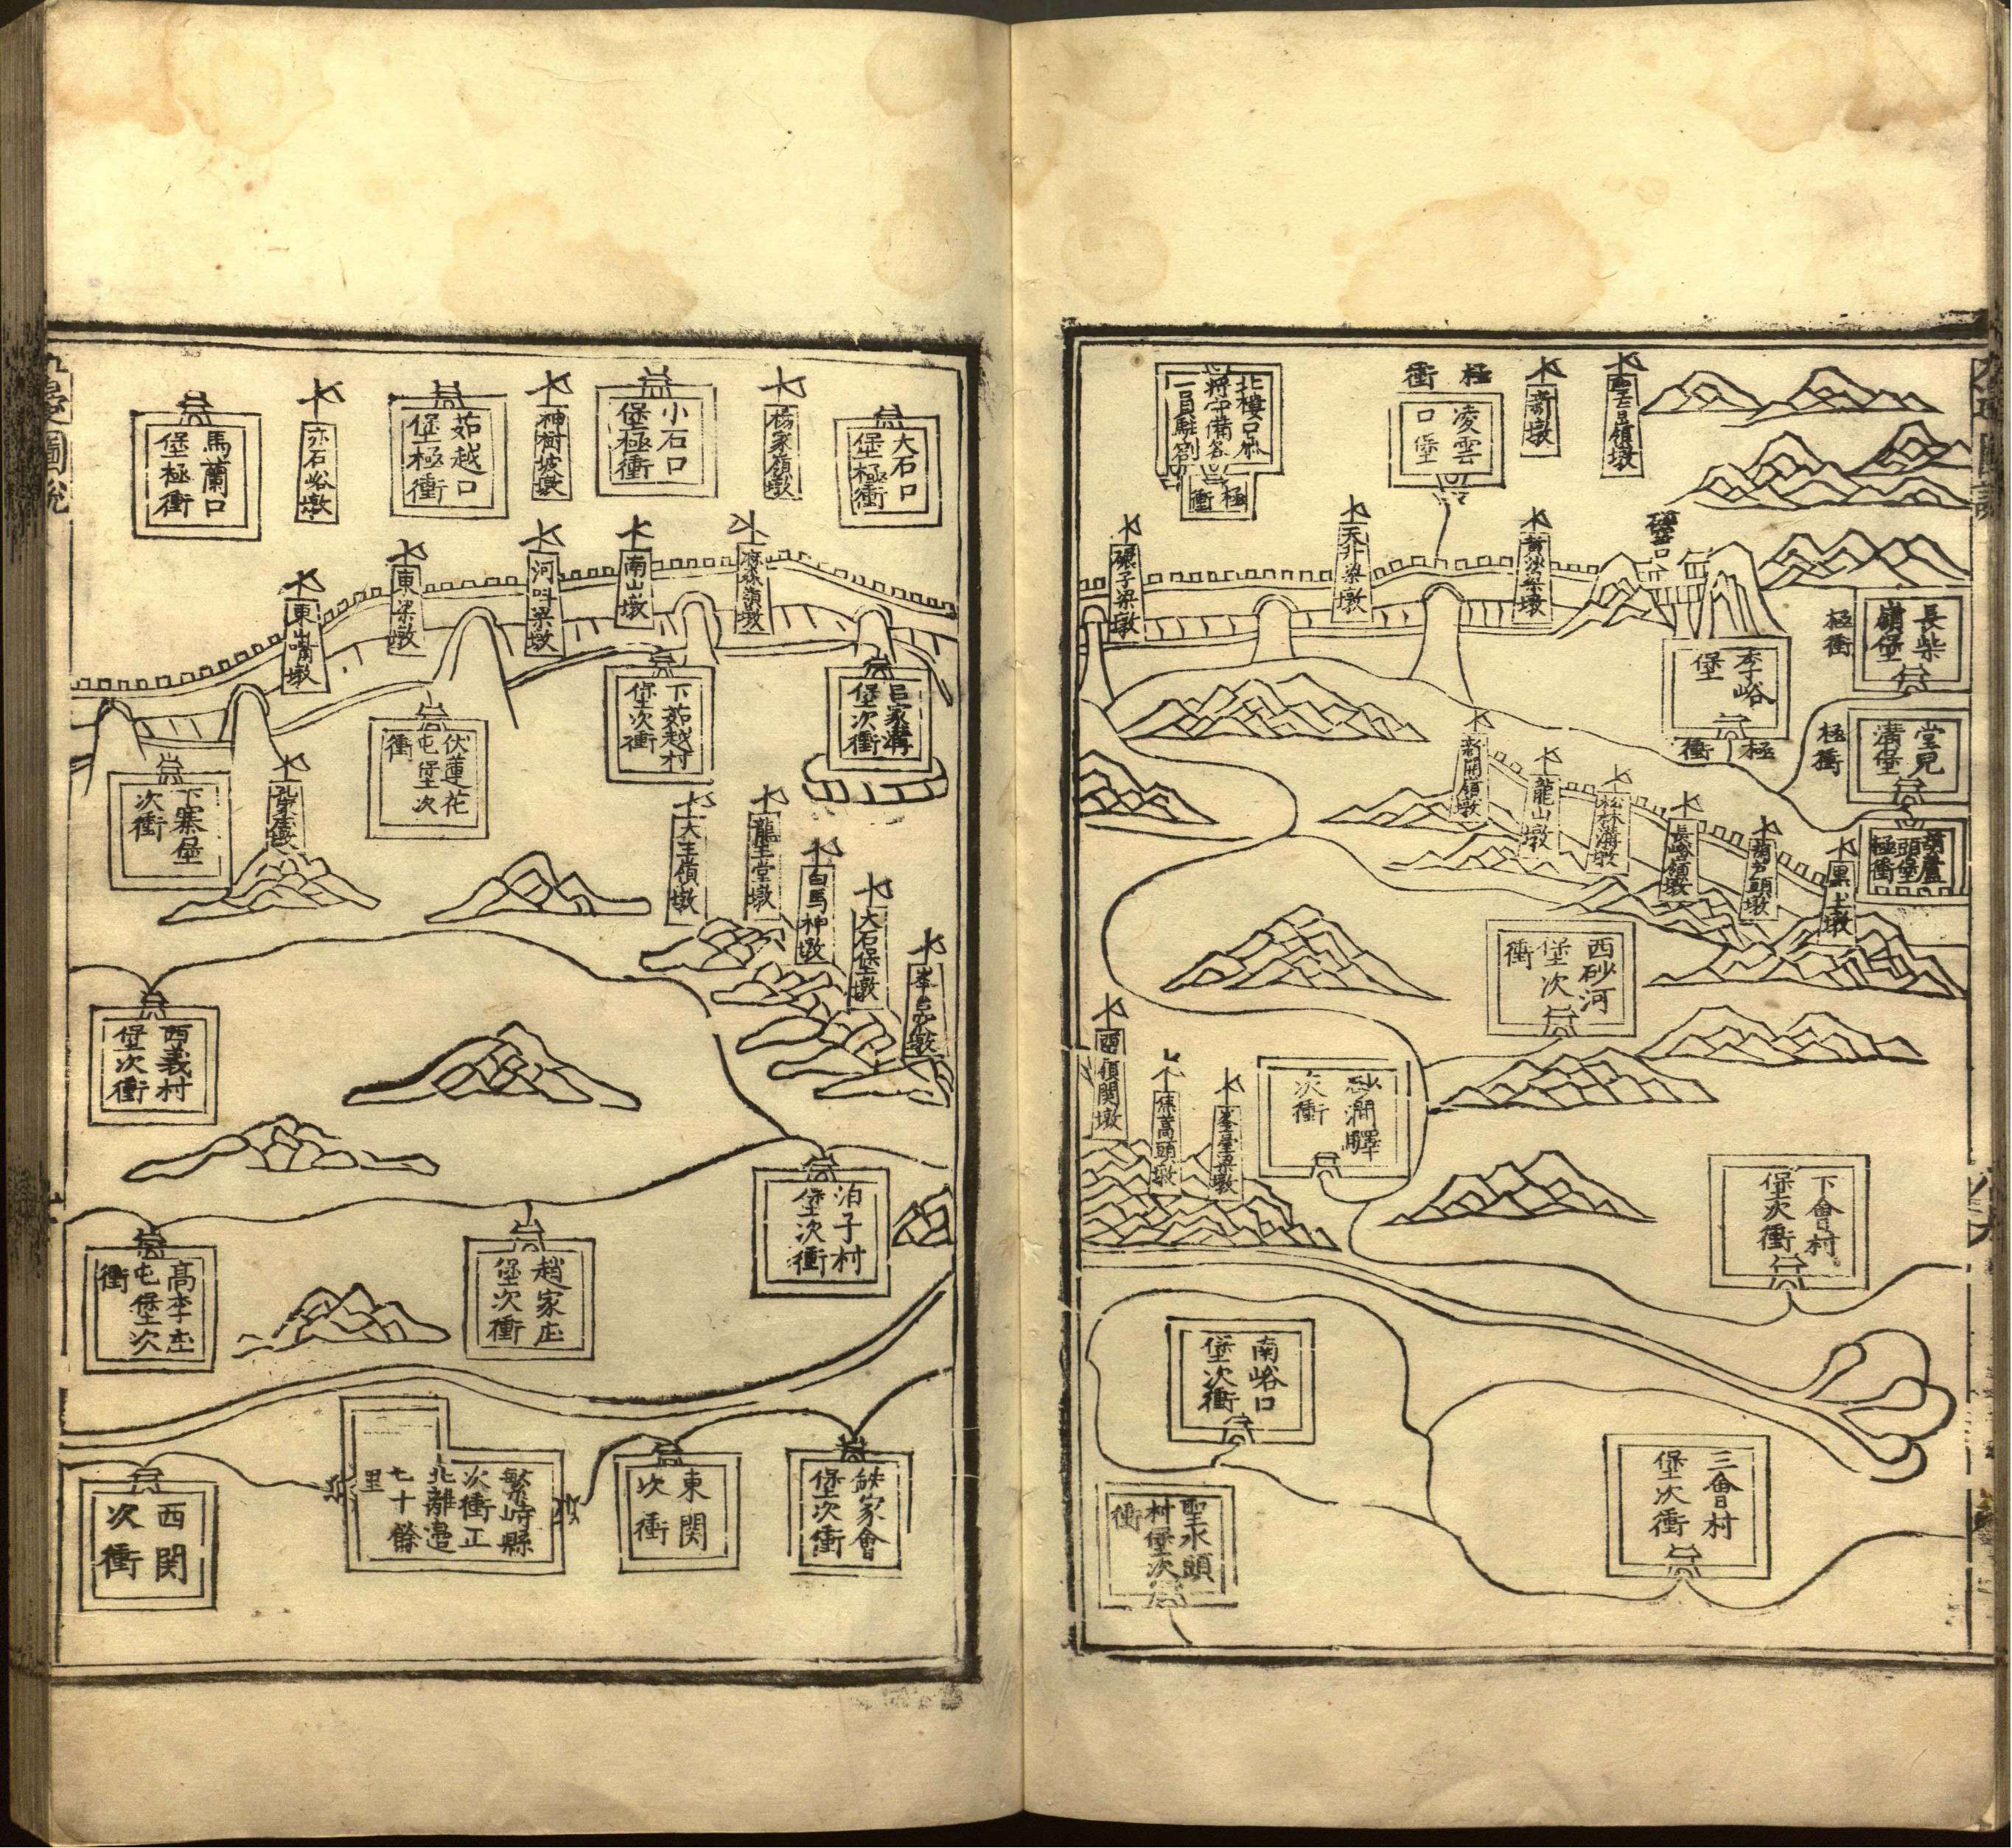 新墩
極衝
凌雲
口堡
北樓口參
將守備各
一員駐劄
極衝
天井梁墩
碾子梁墩
長柴
嶺堡
極衝
李峪
堡
極衝
堂見
溝堡
極衝
葫蘆
頭堡
極衝
新開嶺墩
龍山墩
松林溝墩
長峪嶺墩
葫芦頭墩
黑土墩
西砂河
堡次
衝
砂澗驛
次衝
西嶺関墩
下會村
堡次衝
南峪口
堡次衝
三會村
堡次衝
聖水頭
村堡次
衝
大石口
堡極衝
楊家嶺墩
小石口
堡極衝
神樹坡墩
茹越口
堡極衝
馬蘭口
堡極衝
南山墩
河叫梁墩
東梁墩
東山嘴墩
呂家溝
堡次衝
下茹越村
堡次衝
伏蓮花
屯堡次
衝
下寨堡
次衝
大王嶺墩
龍王堂墩
白馬神墩
大石堡墩
西義村
堡次衝
泊子村
堡次衝
趙家庄
堡次衝
高李庄
屯堡次
衝
家會
堡次衝
東関
次衝
繁峙縣
次衝正
北離邊
七十餘
里
西関
次衝